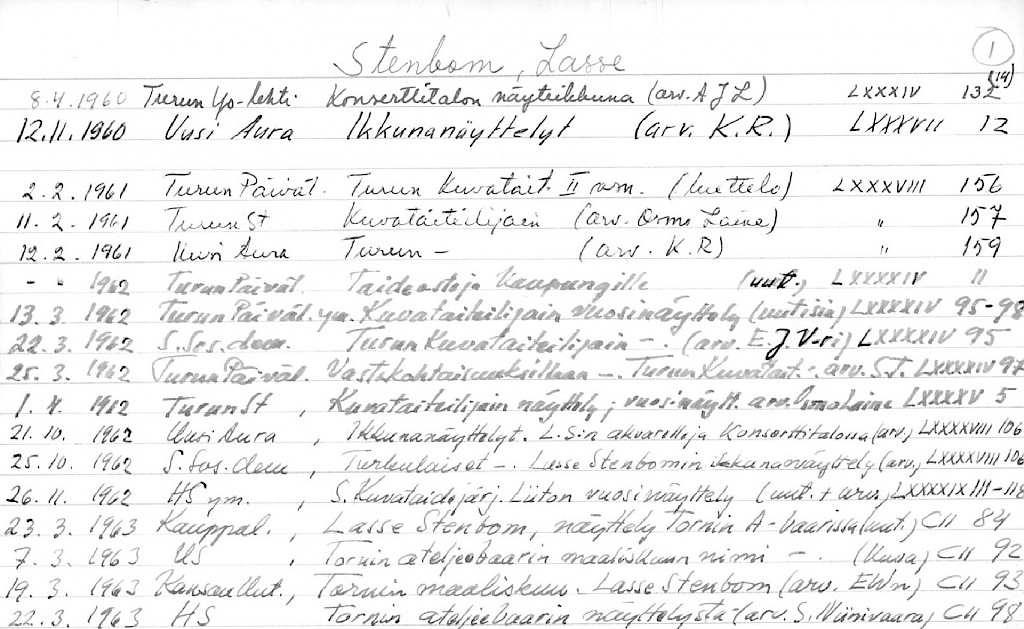 1
Stenbom, Lasse
(14)
8.4.1960 Turun Yo-lehti Konserttitalon näyteikkuna (arv. A J L) LXXXIV 132
12.11.1960 Uusi Aura Ikkunanäyttelyt (arv. K.R.) LXXXVII 12
2.2.1961 Turun Päiväl. Turun Kuvatait. II vm. (luettelo) LXXXVIII 156
11.2.1961 Turun St Kuvataiteilijain (arv. Osmo Laine) " 157
12.2.1961 Uusi Aura Turun - (arv. K.R) " 159
- " 1962 Turun Päiväl. Taideostoja Kaupungille (uut.) LXXXXIV 11
13.3.1962 Turun Päiväl. ym. Kuvataiteilijain vuosinäyttely (uutisia) LXXXXIV 95-98
22.3.1962 S. Sos. dem. Turun Kuvataiteilijain -. (arv. E.J.V-ri) LXXXXIV 95
25.3.1962 Turun Päiväl. -. Turun Kuvatait. - arv. S.T. LXXXXIV 97
1.4.1962 Turun St, Kuvataiteilijain näyttely; vuosinäytt. arv. Osmo Laine LXXXXV 5
21.10.1962 Uusi Aura, Ikkunanäyttelyt. L.S:n akvarelleja Konserttitalossa (arv.) LXXXXVIII 106
25.10.1962 S. Sos. dem, Turkulaiset -. Lasse Stenbomin ikkunanäyttely (arv.) LXXXXVIII 106
26.11.1962 HS ym., S. Kuvataidejärj. Liiton vuosinäyttely (uut. + arv.) LXXXXIX 111-118
23.3.1963 Kauppal., Lasse Stenbom, näyttely Tornin A-baarissa (uut.) CII 84
7.3.1963 US, Tornin ateljeebaarin maaliskuun nimi -. (Kuva) CII 92
19.3.1963 Kansan Uut., Tornin maaliskuu. Lasse Stenbom (arv. EWn) CII 93
22.3.1963 HS Tornin ateljeebaarin näyttelystä (arv. S. Niinivaara) CII 98